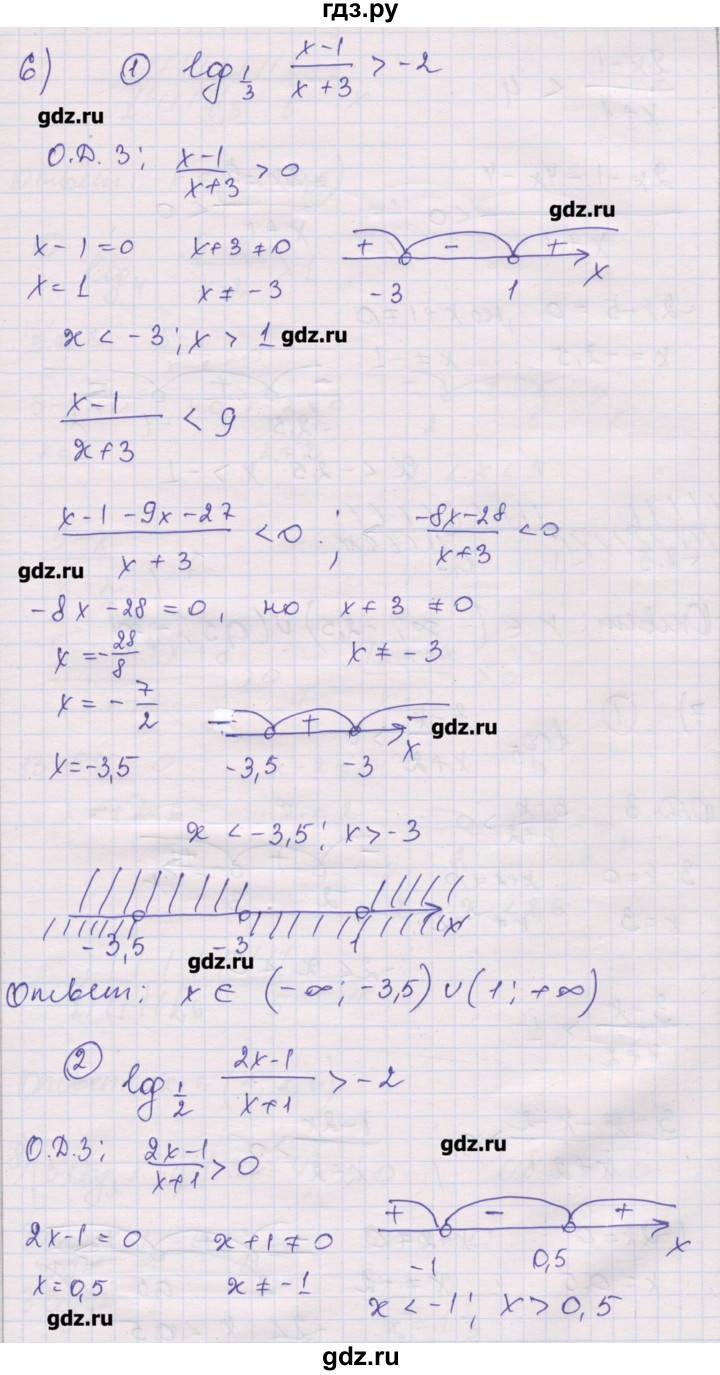 гдз.ру
6) ① log_{1/3} (x-1)/(x+3) > -2
gdz.ru
О.Д.З; (x-1)/(x+3) > 0
gdz.ru
x-1=0 x+3≠0 + - + x
x=1 x≠-3 -3 1
x < -3; x > 1 gdz.ru
(x-1)/(x+3) < 9
(x-1-9x-27)/(x+3) < 0; (-8x-28)/(x+3) < 0
gdz.ru
-8x-28=0, но x+3≠0
x=-28/8 x≠-3
x=-7/2 - + - x gdz.ru
x=-3,5 -3,5 -3
x < -3,5; x > -3
-3,5 -3 1 x
gdz.ru
Ответ: x ∈ (-∞; -3,5) ∪ (1; +∞)
② log_{1/2} (2x-1)/(x+1) > -2
О.Д.З; (2x-1)/(x+1) > 0 gdz.ru
2x-1=0 x+1≠0 + - + x
x=0,5 x≠-1 -1 0,5
gdz.ru x < -1; x > 0,5
gdz.ru